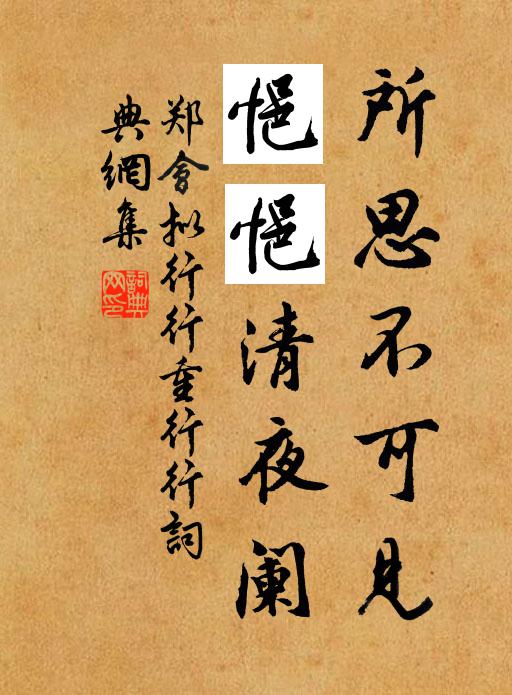 所思不可見
悒悒清夜阑
郑會拟行行重行行詞
典網集
詞典
网印